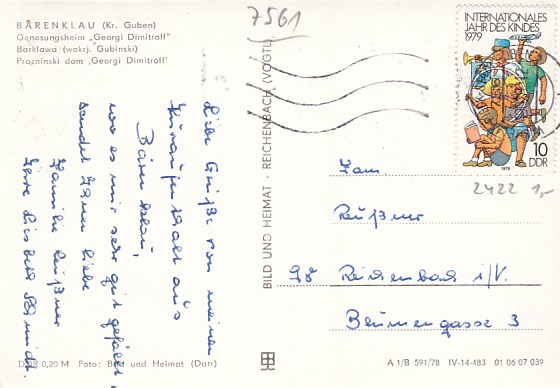 BÄRENKLAU (Kr. Guben)
Genesungsheim „Georgi Dimitroff"
Barklawa (wokrj. Gubinski)
Prozninski dom „Georgi Dimitroff"
7561
INTERNATIONALES
JAHR DES KINDES
1979
10
DDR
1979
2422 1,-
Liebe Grüße von meinen
Kuraufenthalt aus
Bärenklau,
wo es mir sehr gut gefällt,
sendet Ihnen liebe
Familie Reußner
Ihre
BILD UND HEIMAT REICHENBACH (VOGTL)
Fam
Reußner
98 Reichenbach i/V.
Blumengasse 3
0,20 M Foto: Bild und Heimat (Darr)
A 1/B 591/78 IV-14-483 01 06 07 039